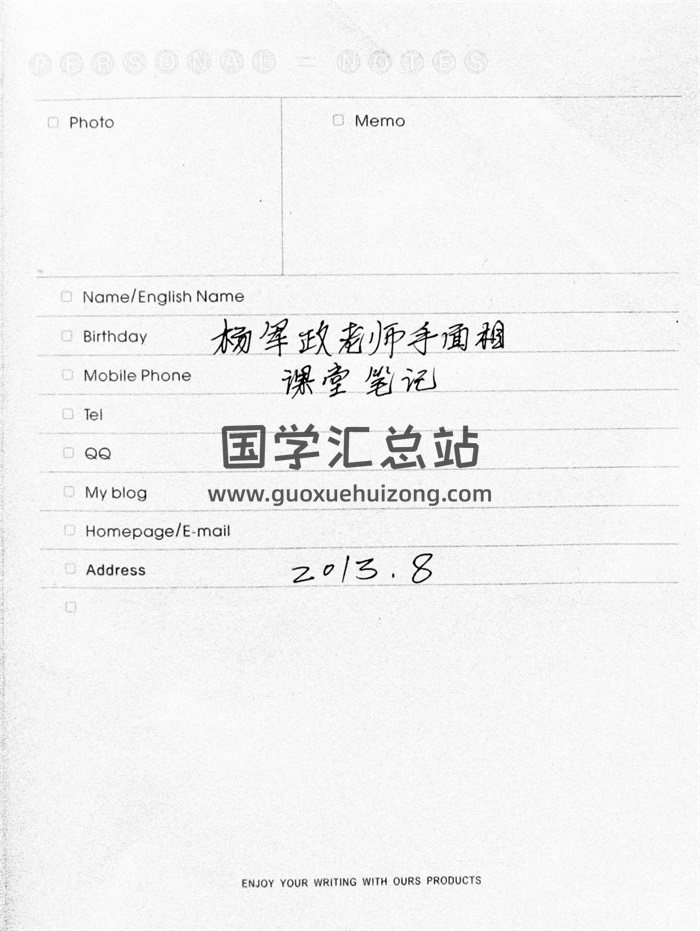 PERSONAL - NOTES
Photo
Memo
Name/English Name
Birthday 杨军政老师手面相
Mobile Phone 课堂笔记
Tel
国学汇总站
QQ
My blog www.guoxuehuizong.com
Homepage/E-mail
Address 2013.8
ENJOY YOUR WRITING WITH OURS PRODUCTS